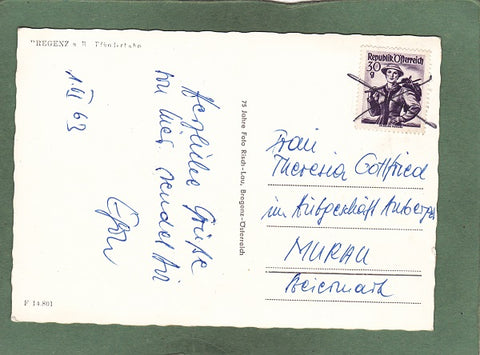 BREGENZ a. B. Pfänderbahn
1.VI 63
Herzliche Grüße
von hier sendet Dir
75 Jahre Foto Risch-Lau, Bregenz-Österreich
F 14.801
Republik Österreich
30
g
Frau
Theresia Gottfried
im
MURAU
Steiermark